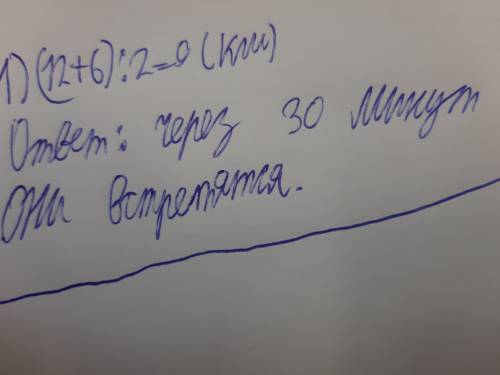 1) (12+6):2=9 (км)
Ответ: через 30 минут
они встретятся.